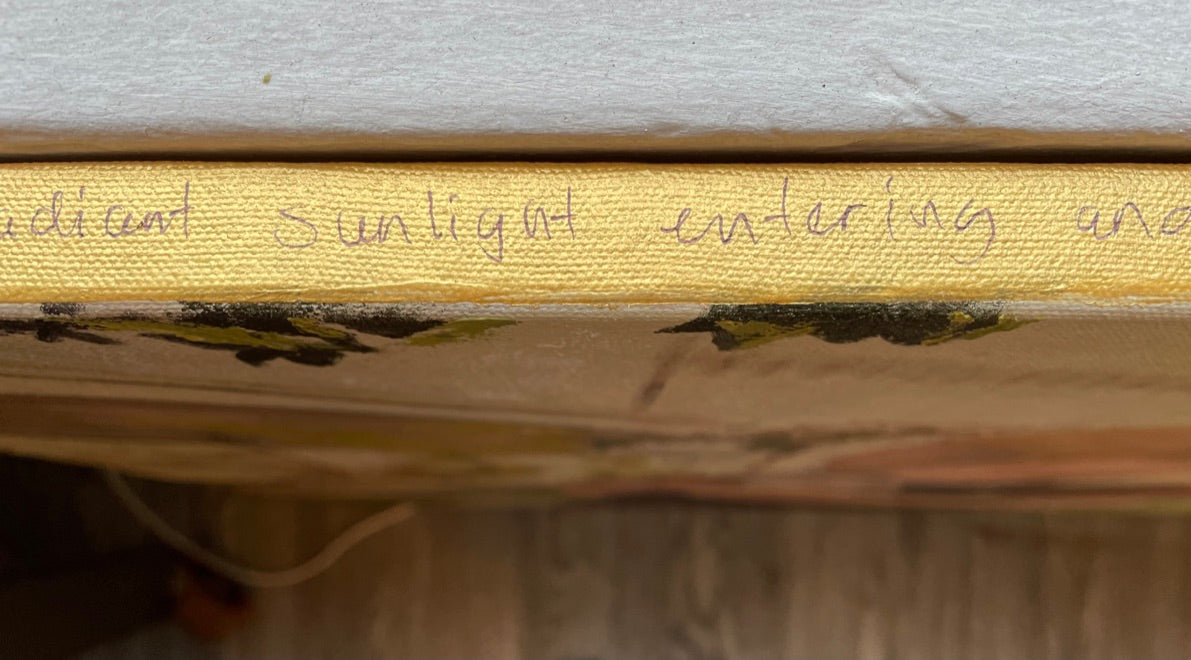 adiant sunlight entering and